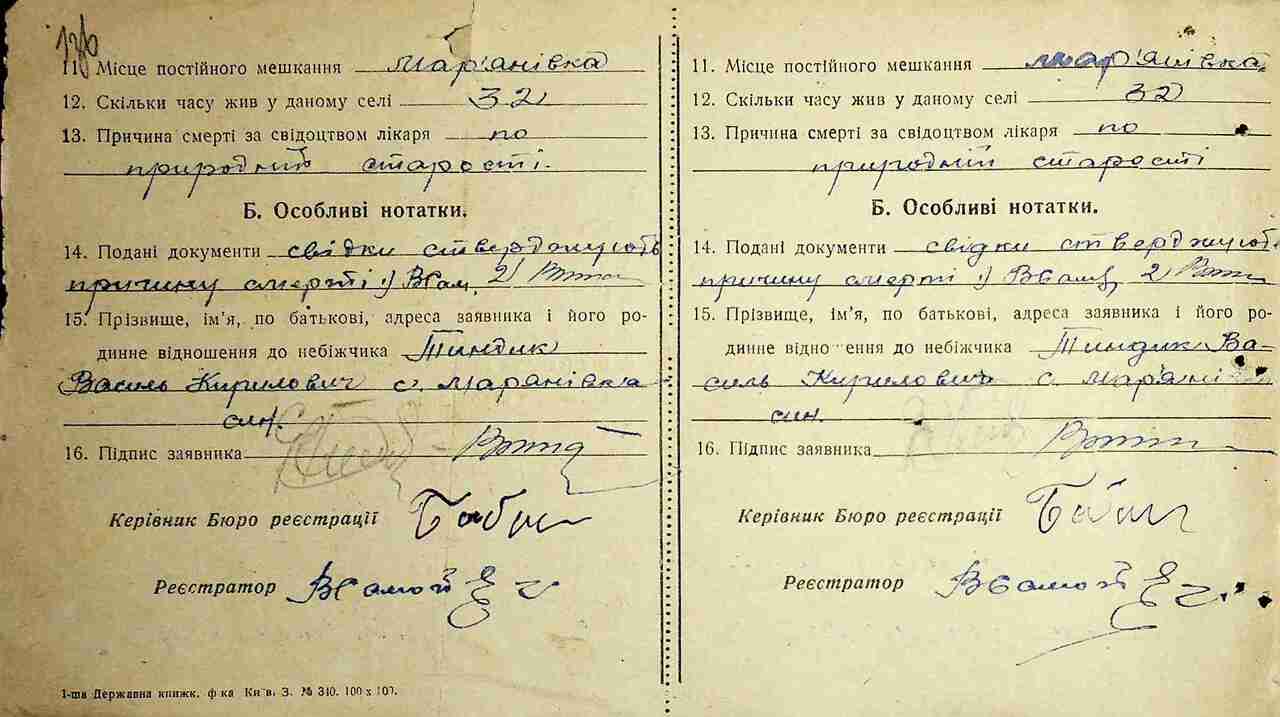 126
11. Місце постійного мешкання Мар'янівка
12. Скільки часу жив у даному селі 32
13. Причина смерті за свідоцтвом лікаря по
природній старості.
Б. Особливі нотатки.
14. Подані документи свідки стверджують
причину смерті 1) 2)
15. Прізвище, ім'я, по батькові, адреса заявника і його ро-
динне відношення до небіжчика Тиндик
Василь Кирилович с. Мар'янівка
син.
16. Підпис заявника
Керівник Бюро реєстрації
Реєстратор
1-ша Державна книжк. ф-ка Київ. З. № 310. 100 x 100.
11. Місце постійного мешкання Мар'янівка
12. Скільки часу жив у даному селі 32
13. Причина смерті за свідоцтвом лікаря по
природній старості
Б. Особливі нотатки.
14. Подані документи свідки стверджують
причину смерті 1) 2)
15. Прізвище, ім'я, по батькові, адреса заявника і його ро-
динне відно ення до небіжчика Тиндик Ва-
силь Кирилович с. Мар'яні
син.
16. Підпис заявника
Керівник Бюро реєстрації
Реєстратор